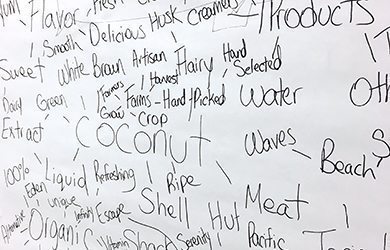 Flavor
Husk
Creamer
Products
Smooth
Delicious
Sweet
White
Brown
Artisan
Hairy
Hand
Selected
Harvest
Dairy
Green
Farms
Hand
Picked
Water
Oth
Grow
Crop
Extract
Coconut
Waves
Beach
100%
Liquid
Refreshing
Ripe
Eden
unique
Shell
Meat
Infinity
Escape
Hut
Organic
Vitamin
Serenity
Pacific